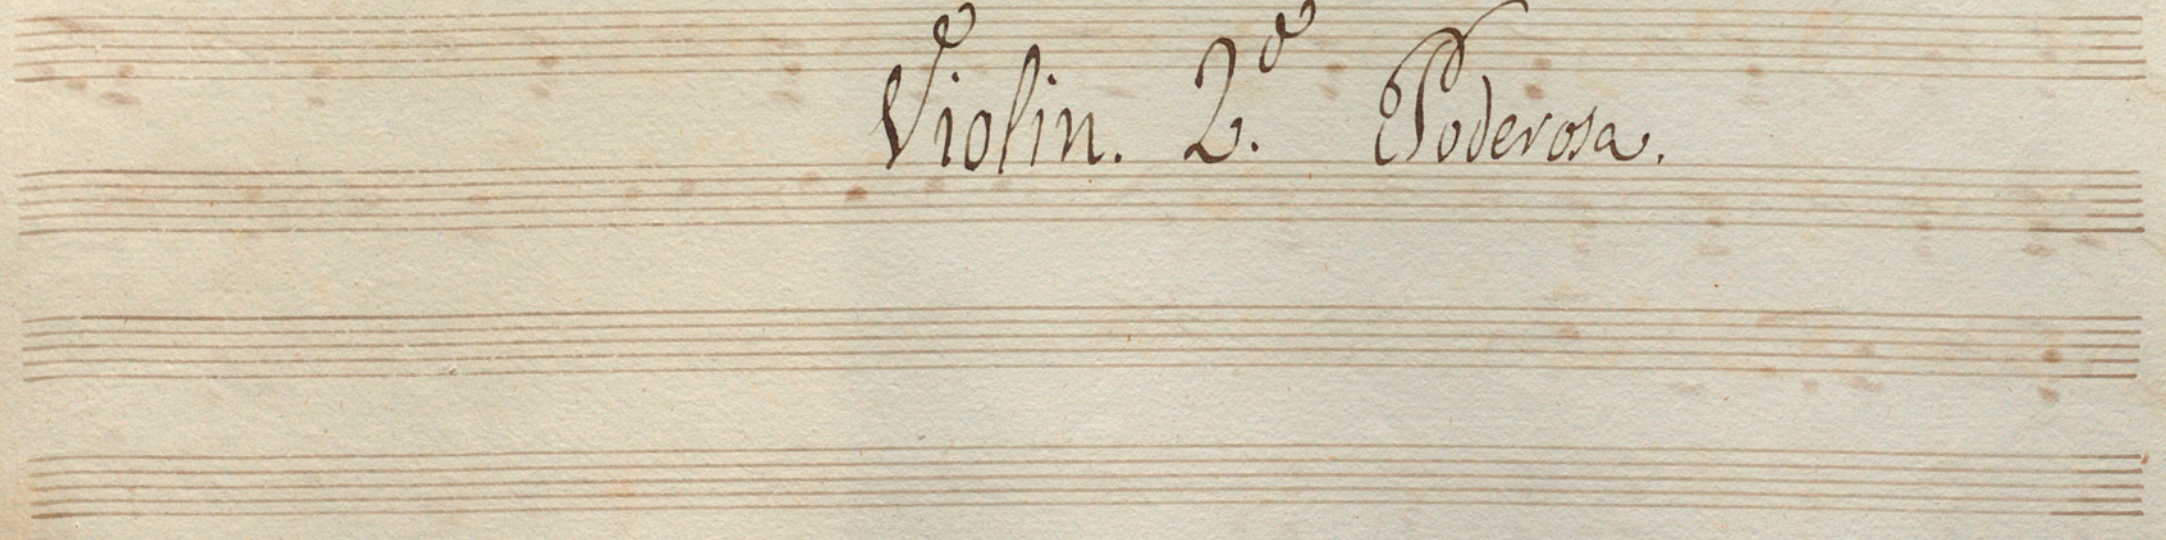 Violin. 2.º Poderosa.